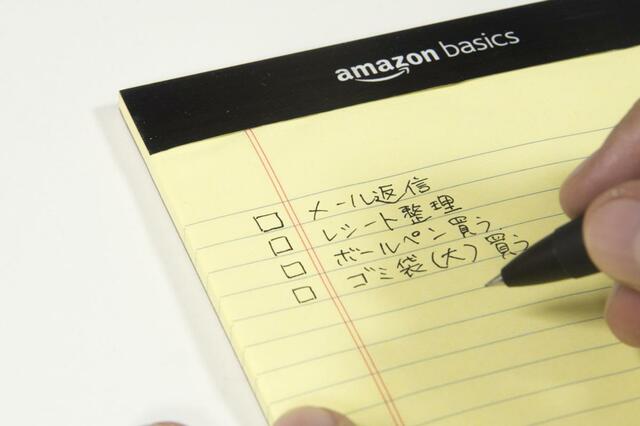 amazon basics
□ メール返信
□ レシート整理
□ ボールペン買う
□ ゴミ袋(大)買う